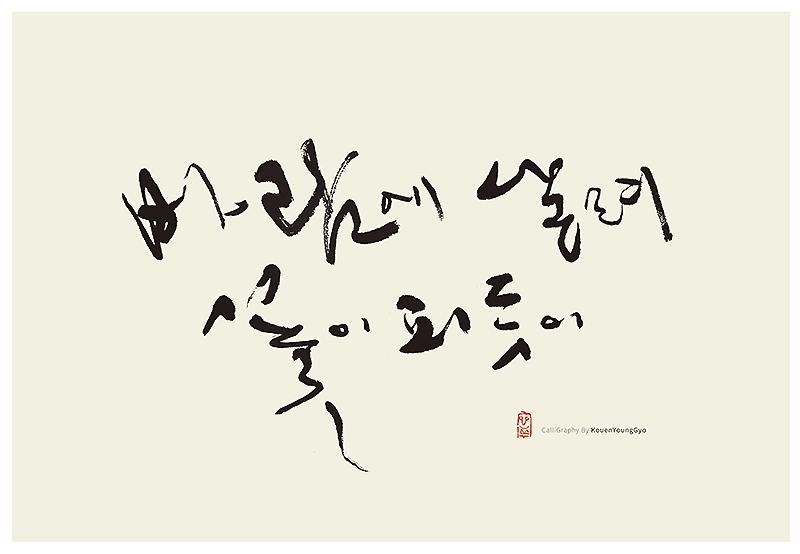 바람에 날려
피듯이
CalliGraphy By KouenYoungGyo